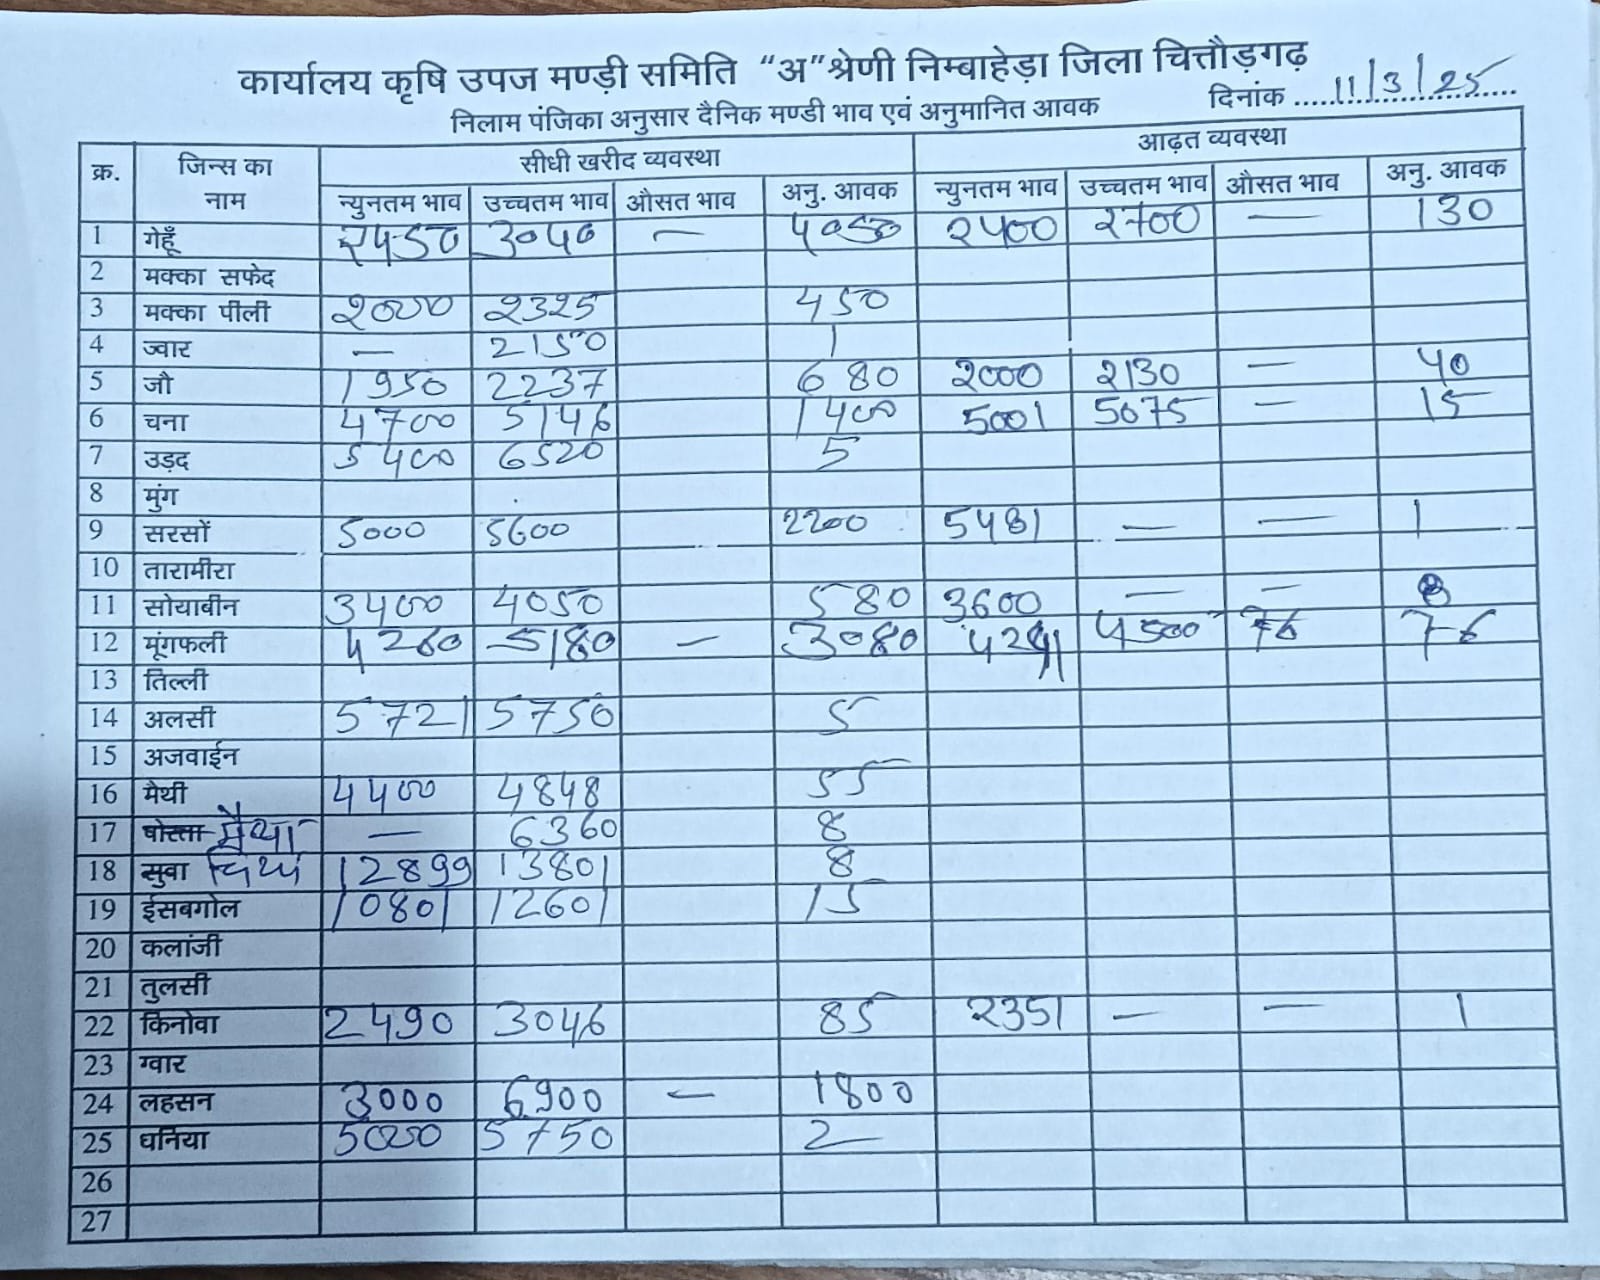 कार्यालय कृषि उपज मण्ड़ी समिति “अ”श्रेणी निम्बाहेड़ा जिला चित्तौड़गढ़
निलाम पंजिका अनुसार दैनिक मण्डी भाव एवं अनुमानित आवक दिनांक ......11/3/25......
क्र. जिन्स का नाम सीधी खरीद व्यवस्था आढ़त व्यवस्था
न्युनतम भाव उच्चतम भाव औसत भाव अनु. आवक न्युनतम भाव उच्चतम भाव औसत भाव अनु. आवक
1 गेहूँ 2450 3040 — 4050 2400 2700 — 130
2 मक्का सफेद
3 मक्का पीली 2000 2325 450
4 ज्वार — 2150 1
5 जौ 1950 2237 680 2000 2130 — 40
6 चना 4700 5146 1400 5001 5075 — 15
7 उड़द 5400 6520 5
8 मुंग
9 सरसों 5000 5600 2200 5481 — — 1
10 तारामीरा
11 सोयाबीन 3400 4050 580 3600 — —
12 मूंगफली 4260 5180 — 3080 4500 76 76
13 तिल्ली
14 अलसी 5721 5750 5
15 अजवाईन
16 मैथी 4400 4848 55
17 — 6360 8
18 सुवा 12899 13801 8
19 ईसबगोल 10801 12601 15
20 कलांजी
21 तुलसी
22 किनोवा 2490 3046 85 2351 — — 1
23 ग्वार
24 लहसन 3000 6900 — 1800
25 धनिया 5000 5750 2
26
27